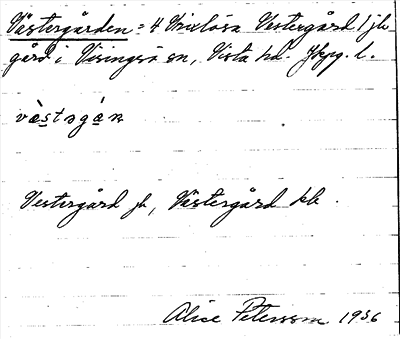 Västergården = 4 Vestergård 1 jb
gård i Visingsö sn, Vista hd. Jkpg. l.
vàstsgán
Vestergård jb, Västergård kb.
Alice Petersson 1936